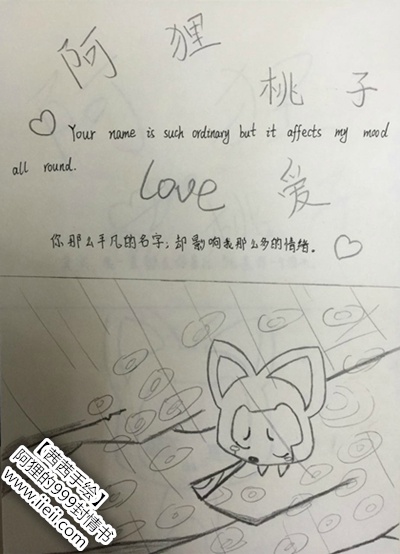 阿狸
桃子
Your name is such ordinary but it affects my mood
all round.
love 爱
你那么平凡的名字，却影响我那么多的情绪。
【茜茜手绘】
阿狸的999封情书
www.iieii.com